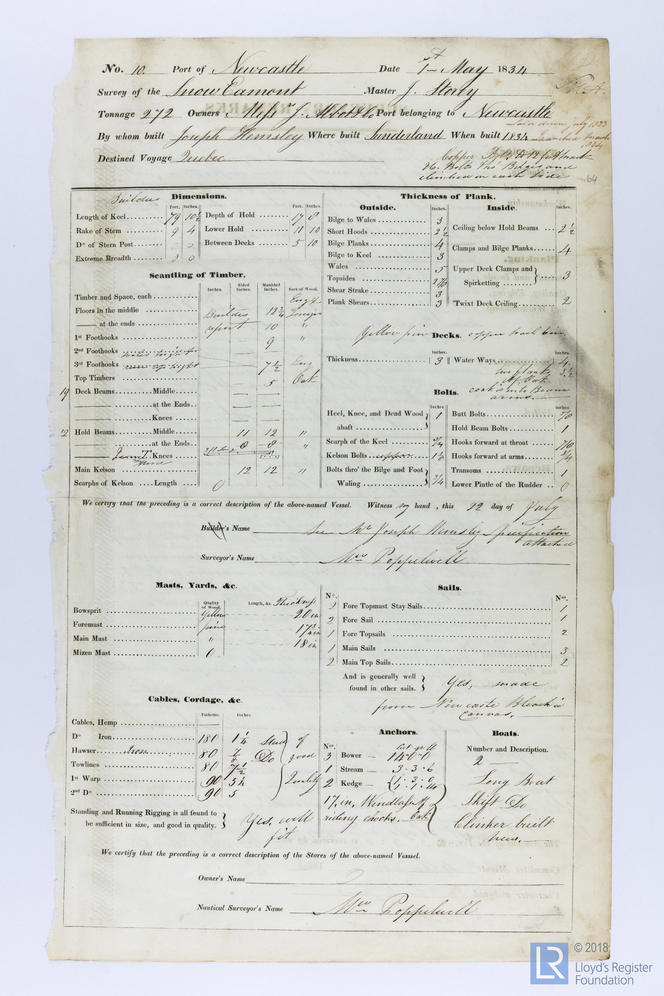 No. 10. Port of Newcastle Date 1st May 1834
Survey of the Snow Eamont Master J. Storey
Tonnage 272 Owners Messrs J. Abbot & Co Port belonging to Newcastle
By whom built Joseph Hemsley Where built Sunderland When built 1834
Destined Voyage Quebec
Builder
Dimensions.
Feet. Inches. Feet. Inches.
Length of Keel 79 10½ Depth of Hold 17 8
Rake of Stem 9 4 Lower Hold 11 10
Do of Stern Post 0 Between Decks 5 10
Extreme Breadth 0
Thickness of Plank.
Outside. Inches. Inside. Inches.
Bilge to Wales 3
Short Hoods 2½
Bilge Planks 4
Bilge to Keel 3
Wales 5
Topsides
Shear Strake 3
Plank Shears 3
Ceiling below Hold Beams 2½
Clamps and Bilge Planks 4
Upper Deck Clamps and Spirketting 3
Twixt Deck Ceiling 2
Scantling of Timber.
Inches. Sided Inches. Moulded Inches. Sort of Wood.
Timber and Space, each
Floors in the middle
at the ends 10 "
1st Foothooks 9 "
2nd Foothooks
3rd Foothooks 7½
Top Timbers 5 Oak
19 Deck Beams Middle
at the Ends
Knees
Hold Beams Middle 11 12 "
at the Ends 8 8 "
Knees
Main Kelson 12 12 "
Scarphs of Kelson Length 0
Yellow pine Decks.
Thickness 3 Inches. Water Ways 4
Bolts.
Inches. Inches.
Heel, Knee, and Dead Wood abaft 1
Scarph of the Keel
Kelson Bolts copper
Bolts thro' the Bilge and Foot Waling ¾
Butt Bolts
Hold Beam Bolts 1
Hooks forward at throat
Hooks forward at arms ¾
Transoms 1
Lower Pintle of the Rudder 0
We certify that the preceding is a correct description of the above-named Vessel. Witness my hand, this 22 day of July
Builder's Name See Mr Joseph Hemsley specification attached
Surveyor's Name Wm Poppelwell
Masts, Yards, &c.
Quality of Wood. Length, &c. Thickness
Bowsprit Yellow 20 in
Foremast pine
Main Mast " 18 in
Mizen Mast 0
Sails.
No. No.
2 Fore Topmast Stay Sails 1
2 Fore Sail 1
1 Fore Topsails 2
1 Main Sails 3
2 Main Top Sails 2
And is generally well found in other sails. Yes, made
from Newcastle Bleach'd
Canvas.
Cables, Cordage, &c.
Fathoms. Inches.
Cables, Hemp
Do Iron 180 1¼ Stud of
Hawser Iron 80 Do good
Towlines 80 7½ Quality
1st Warp 90
2nd Do 90 5
Standing and Running Rigging is all found to be sufficient in size, and good in quality. Yes, well
fit
Anchors.
No. Cwt qr lb
3 Bower 14-0-0
1 Stream 3-3-6
2 Kedge 1-3-0
1-1-14
17 in, Windlass
riding chocks. Oak
Boats.
Number and Description.
2
Long Boat
Skiff Do
Clinker built
new.
We certify that the preceding is a correct description of the Stores of the above-named Vessel.
Owner's Name
Nautical Surveyor's Name Wm Poppelwell
LR © 2018
Lloyd's Register
Foundation